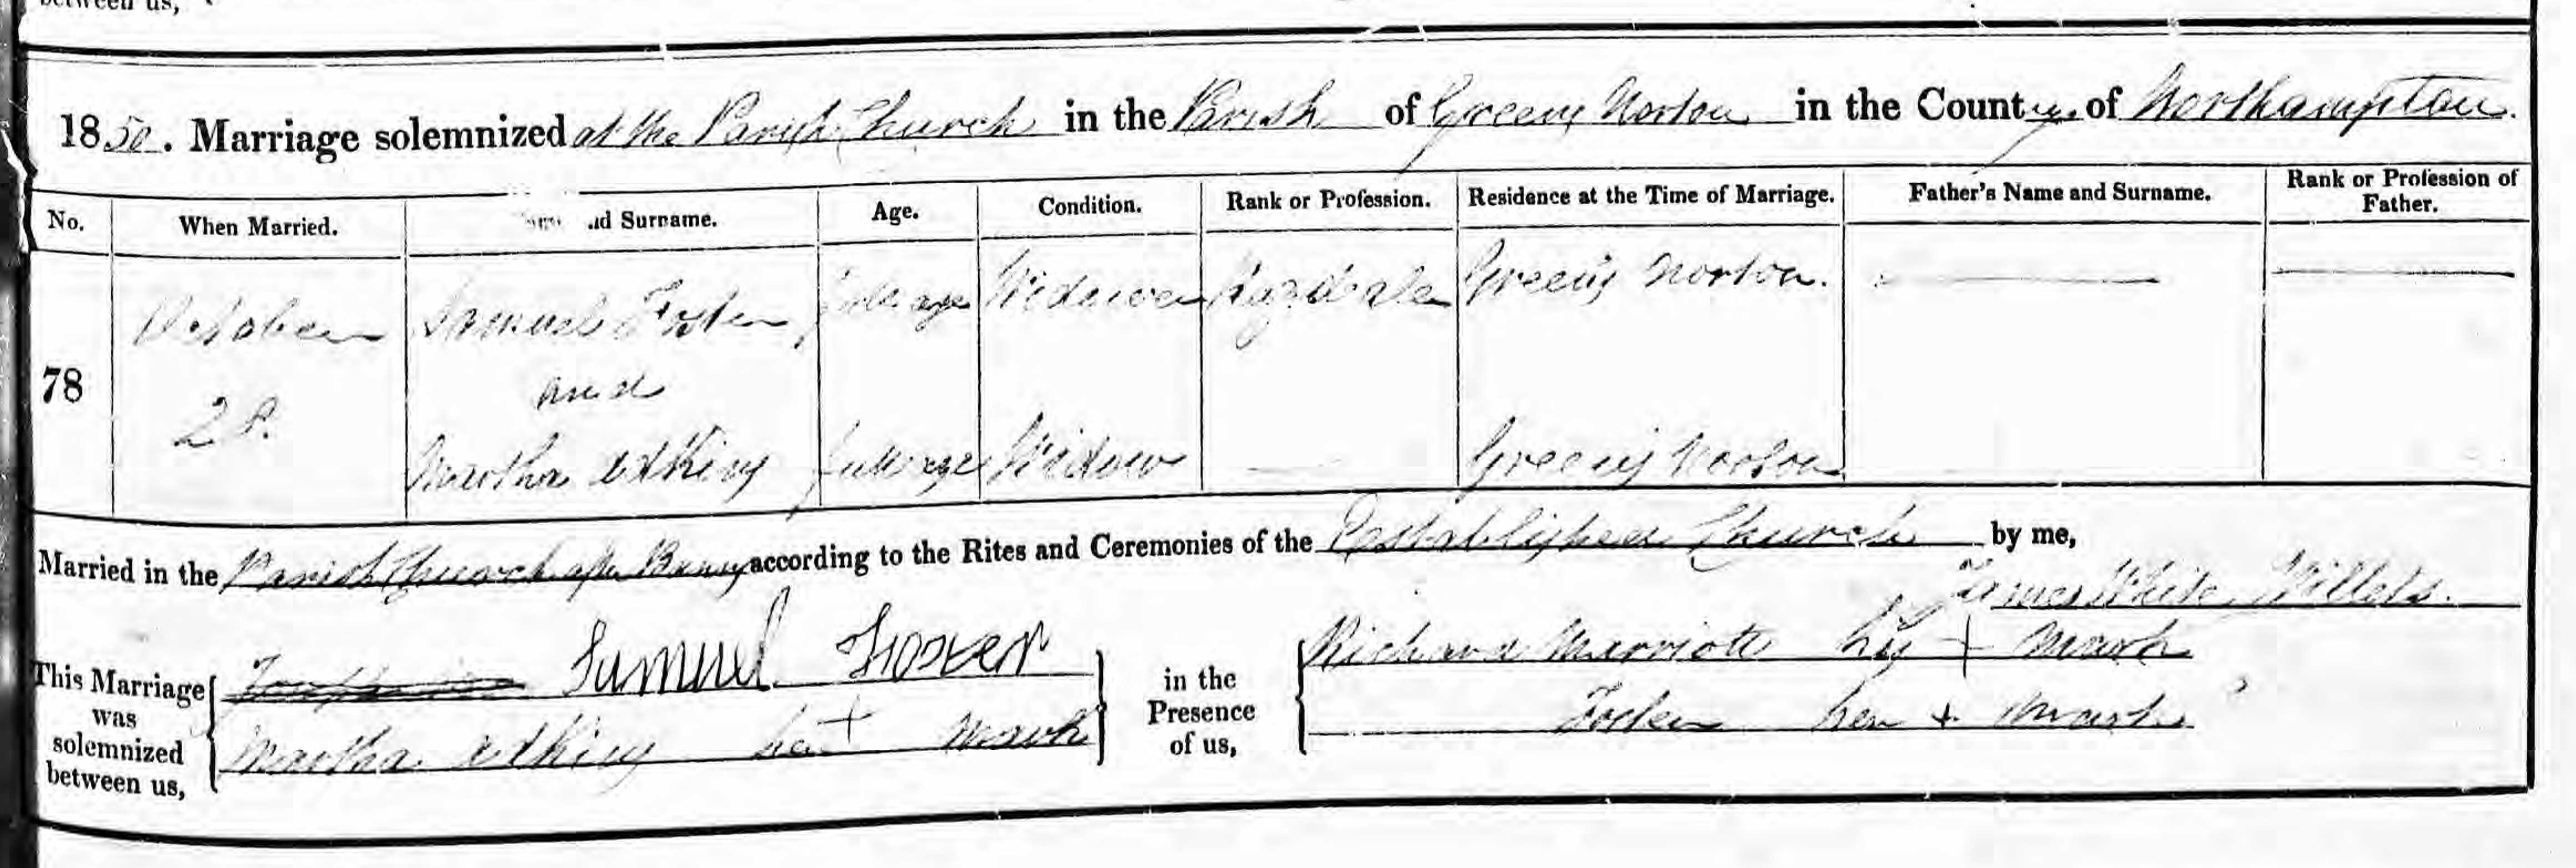 between us,
1850. Marriage solemnized at the Parish Church in the Parish of Greens Norton in the County of Northampton.
No. When Married. Surname. Age. Condition. Rank or Profession. Residence at the Time of Marriage. Father's Name and Surname. Rank or Profession of Father.
78 October 28. Samuel Foster full age Widower Greens Norton.
and
Martha Adkins full age Widow Greens Norton
Married in the Parish Church after Banns according to the Rites and Ceremonies of the Established Church by me,
James White Willets.
This Marriage was solemnized between us, Samuel Foster
Martha Adkins her + Mark
in the Presence of us, Richard Marriott his + Mark
Foster her + Mark